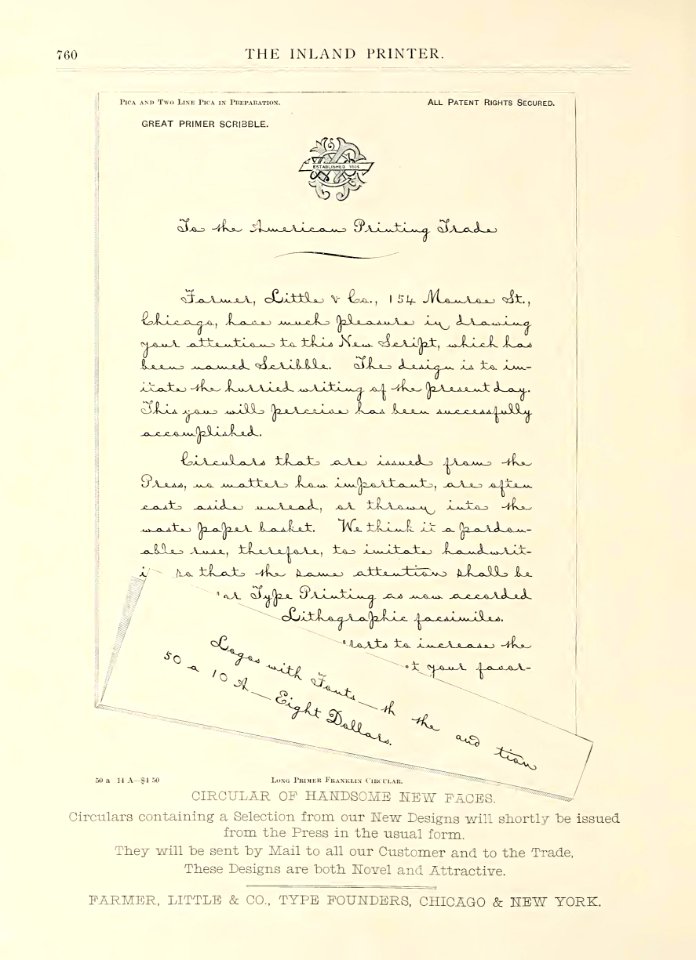 760
THE INLAND PRINTER.
PICA AND TWO LINE PICA IN PREPARATION.
ALL PATENT RIGHTS SECURED.
GREAT PRIMER SCRIBBLE.
ESTABLISHED
To the American Printing Trade
Farmer, Little & Co., 154 Monroe St.,
Chicago, have much pleasure in drawing
your attention to this New Script, which has
been named Scribble. The design is to im-
itate the hurried writing of the present day.
This you will perceive has been successfully
accomplished.
Circulars that are issued from the
Press, no matter how important, are often
cast aside unread, or thrown into the
waste paper basket. We think it a pardon-
able ruse, therefore, to imitate handwrit-
i so that the same attention shall be
or Type Printing as now accorded
Lithographic facsimiles.
orts to increase the
t your favor-
Logos with Fonts—th the and tion
50 a 10 A—Eight Dollars.
50 a 14 A—$4 50
LONG PRIMER FRANKLIN CIRCULAR.
CIRCULAR OF HANDSOME NEW FACES.
Circulars containing a Selection from our New Designs will shortly be issued
from the Press in the usual form.
They will be sent by Mail to all our Customer and to the Trade,
These Designs are both Novel and Attractive.
FARMER, LITTLE & CO., TYPE FOUNDERS, CHICAGO & NEW YORK.